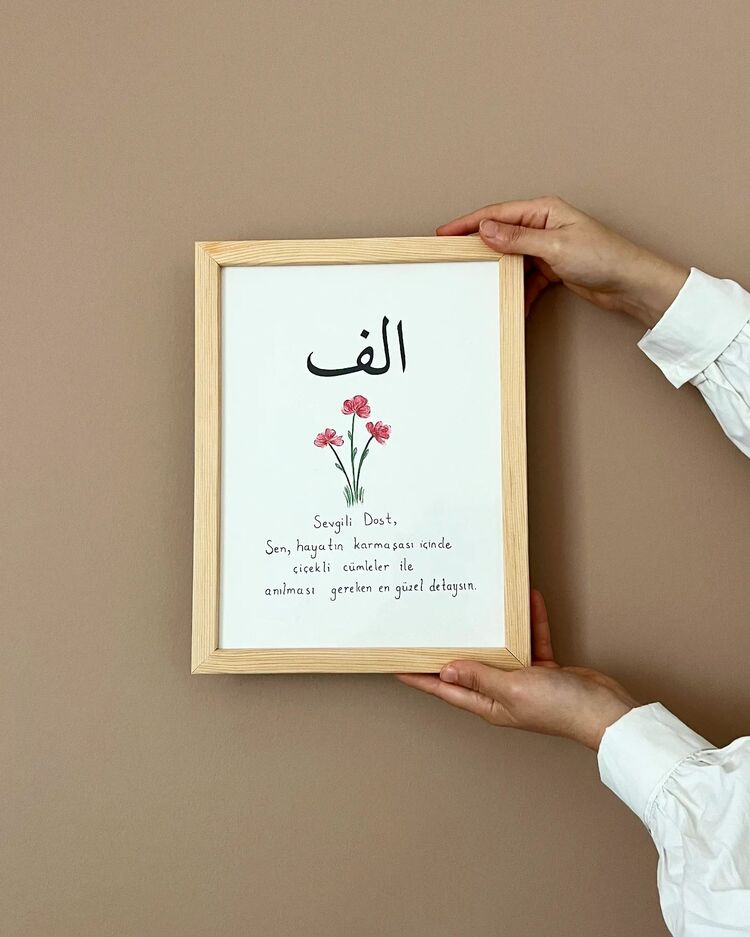 الف
Sevgili Dost,
Sen, hayatın karmaşası içinde
çiçekli cümleler ile
anılması gereken en güzel detaysın.